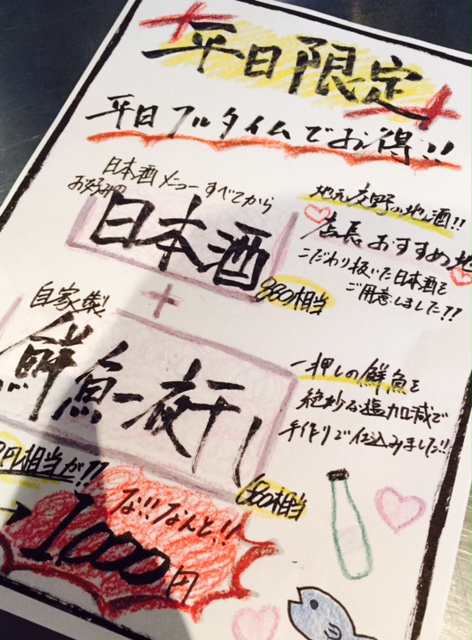 平日限定
平日フルタイムでお得!!
日本酒メニューすべてから
お好みの
日本酒
860相当
地元交野の地酒!!
店長おすすめ地
こだわり抜いた日本酒を
ご用意しました!!
+
自家製
鮮魚一夜干し
680相当
一押しの鮮魚を
絶妙な塩加減で
手作りで仕込みました!!
円相当が!!
な!!なんと!!
→1000円